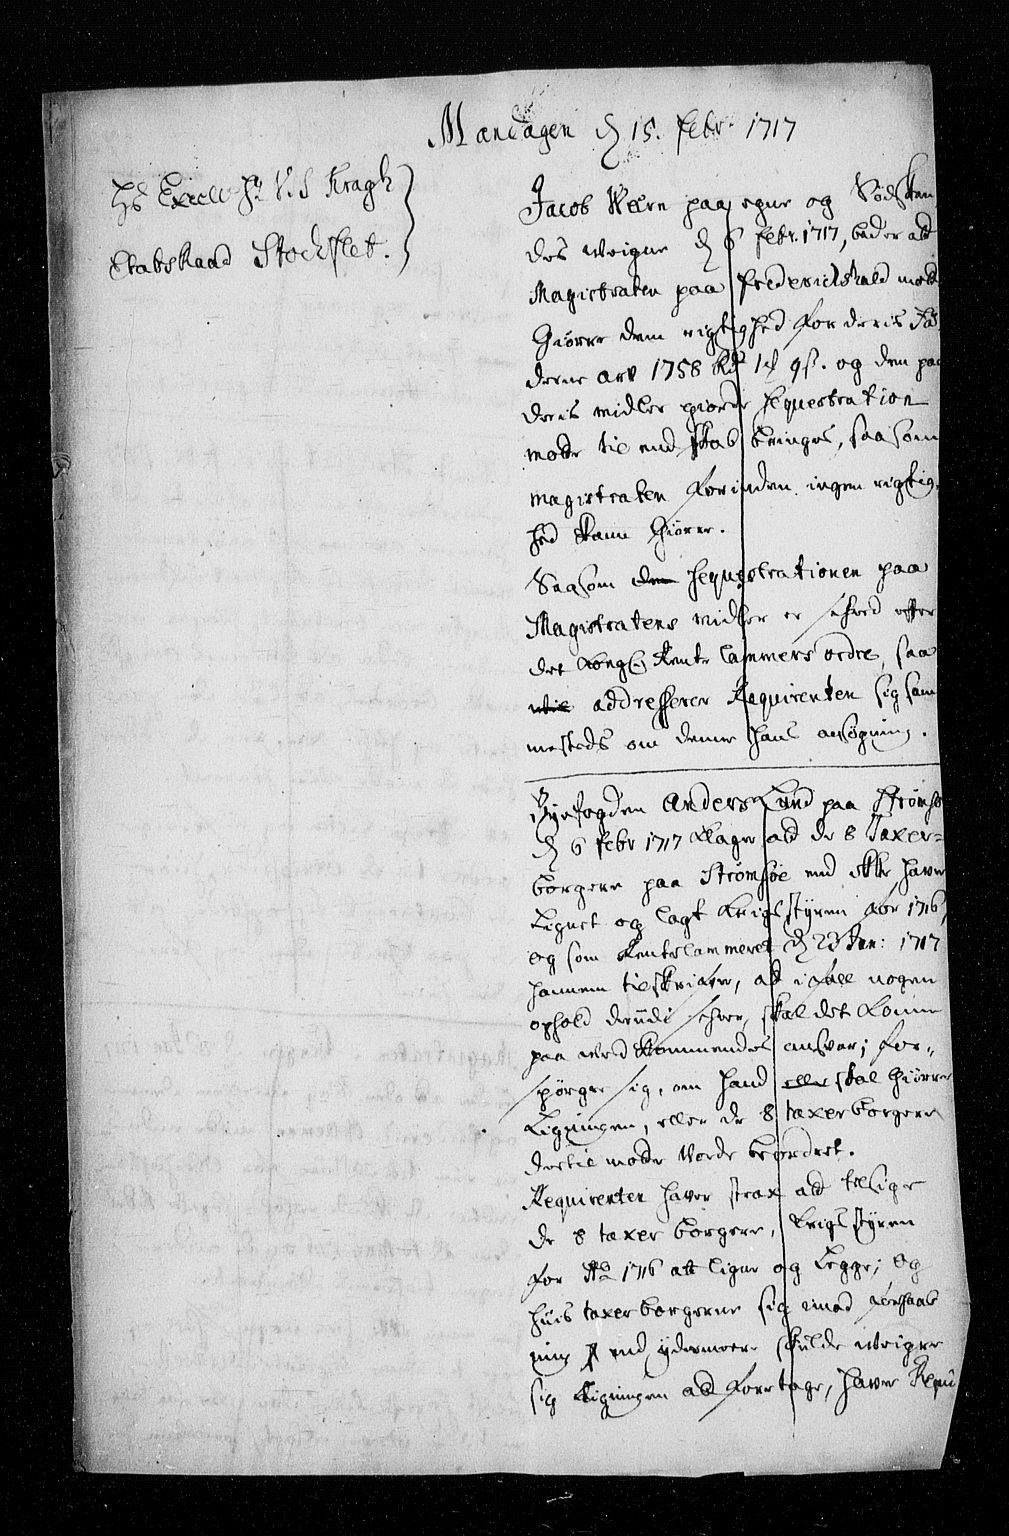 Mandagen d 15. Febr. 1717
Hs Excell. Hr V. S Kragh
Etatsraad Stockflet.
Jacob Wern paa egne og Sødsken
des weigne d 6 febr. 1717, beder att
Magistraten paa Frederichshald motte
Giørre dem rigtighed for deris Fæ
derne arv 1758 Rdr 1 ꝶ 9 s. og den paa
deris midler giorde sequestration
motte til endskab bringes, saasom
magistraten forinden ingen rigtig,
hed kann Giører.
Saasom den sequestrationen paa
Magistratens midler er scheed efter
det Kongl. Rente Cammers ordre, saa
addresserer Requirenten sig sam
mesteds om denne hans ansøgning.
Byefogden Anders Lund paa Strømsø
d 6 febr 1717 Klager att de 8 Taxer=
borgere paa Strømsøe end ikke haver
Lignet og lagt Krigsstyren for 1716,
og som Rentecammeret d 23 Jan: 1717
hannem tilskrifver, at i fall nogen
ophold derudi scheer, skal det komme
paa vedkommendes ansvar; for,,
spørger sig, om hand eller skal Giørre
Ligningen, eller de 8 taxerborgere
dertil motte vorde beordret.
Requirenten haver strax att tilsige
de 8 taxerborgere, Krigsstyren
for Ao 1716 att ligne og Legge; og
huis taxerborgerne sig imod forhaab
ning end ydermeere skulde weigre
sig Ligningen att foretage, haver Requi